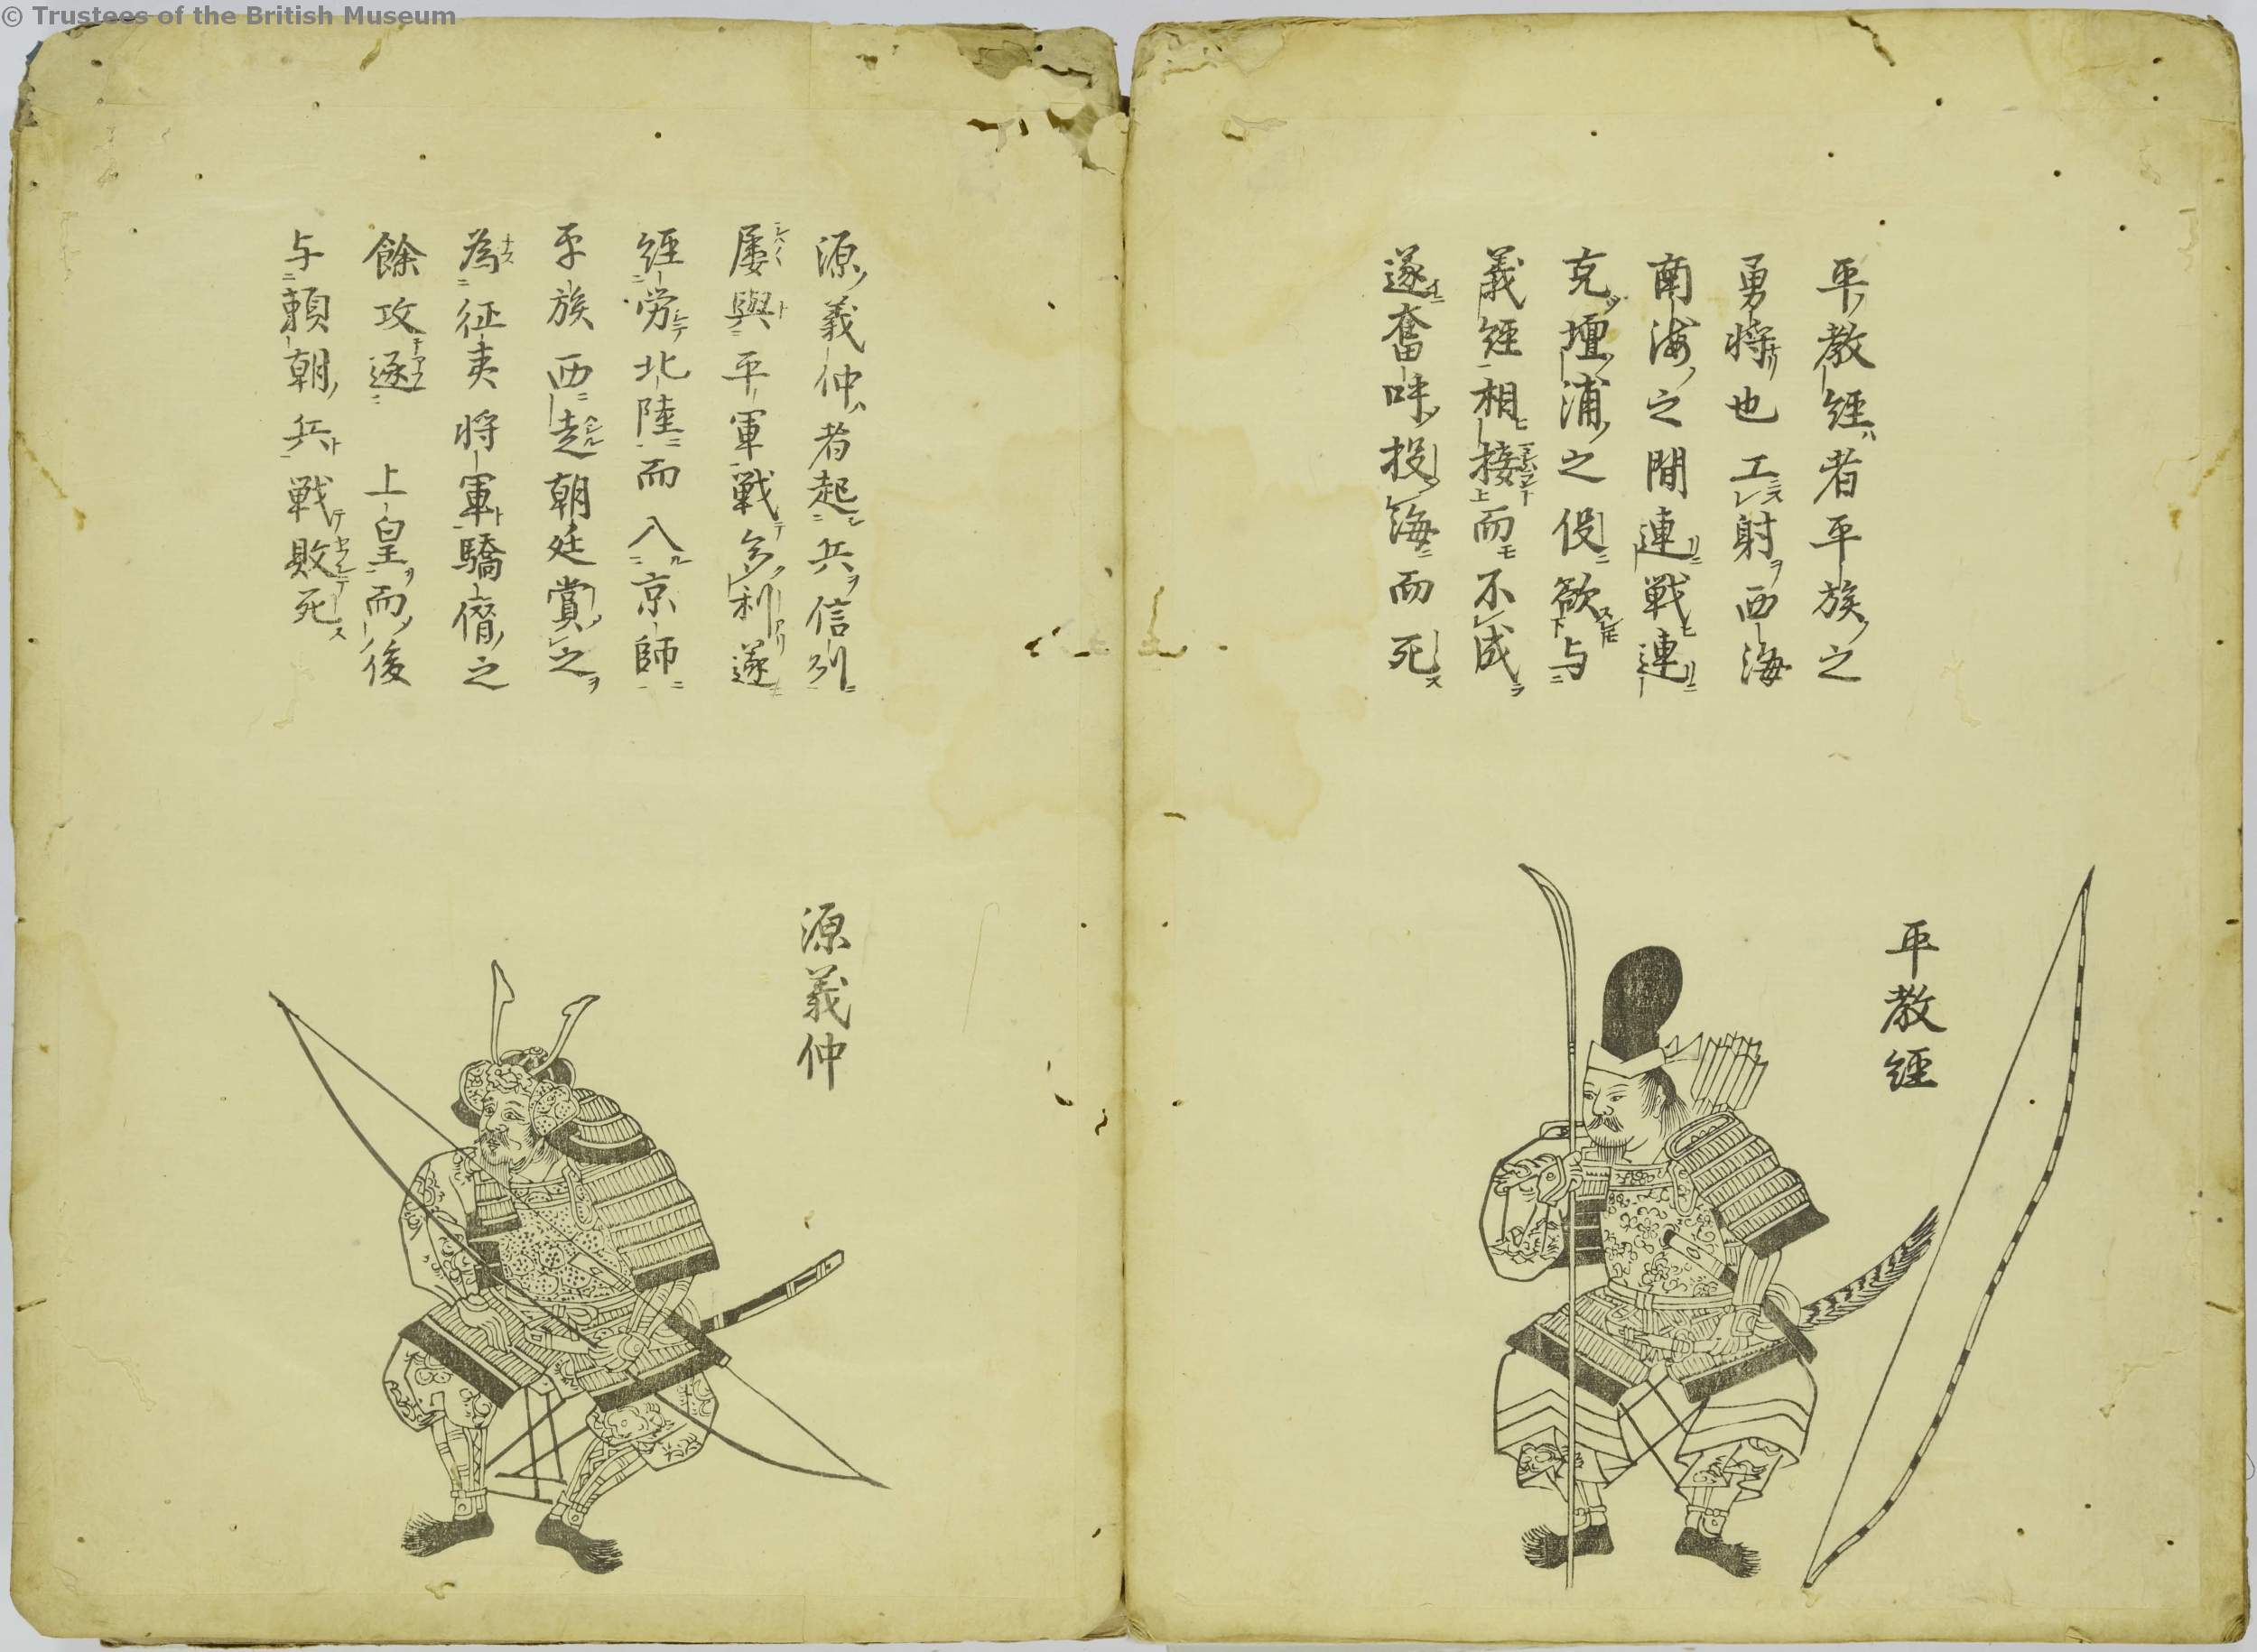 © Trustees of the British Museum
平教経者平族之
勇将也工射西海
南海之間連戦連
克壇浦之役欲与
義経相接而不成
遂奮呼投海而死
平教経
源義仲者起兵信列
屡與平軍戦多利遂
経労北陸而入京師
平族西走朝廷賞之
為征夷将軍驕僭之
餘攻逐 上皇而後
与頼朝兵戦敗死
源義仲